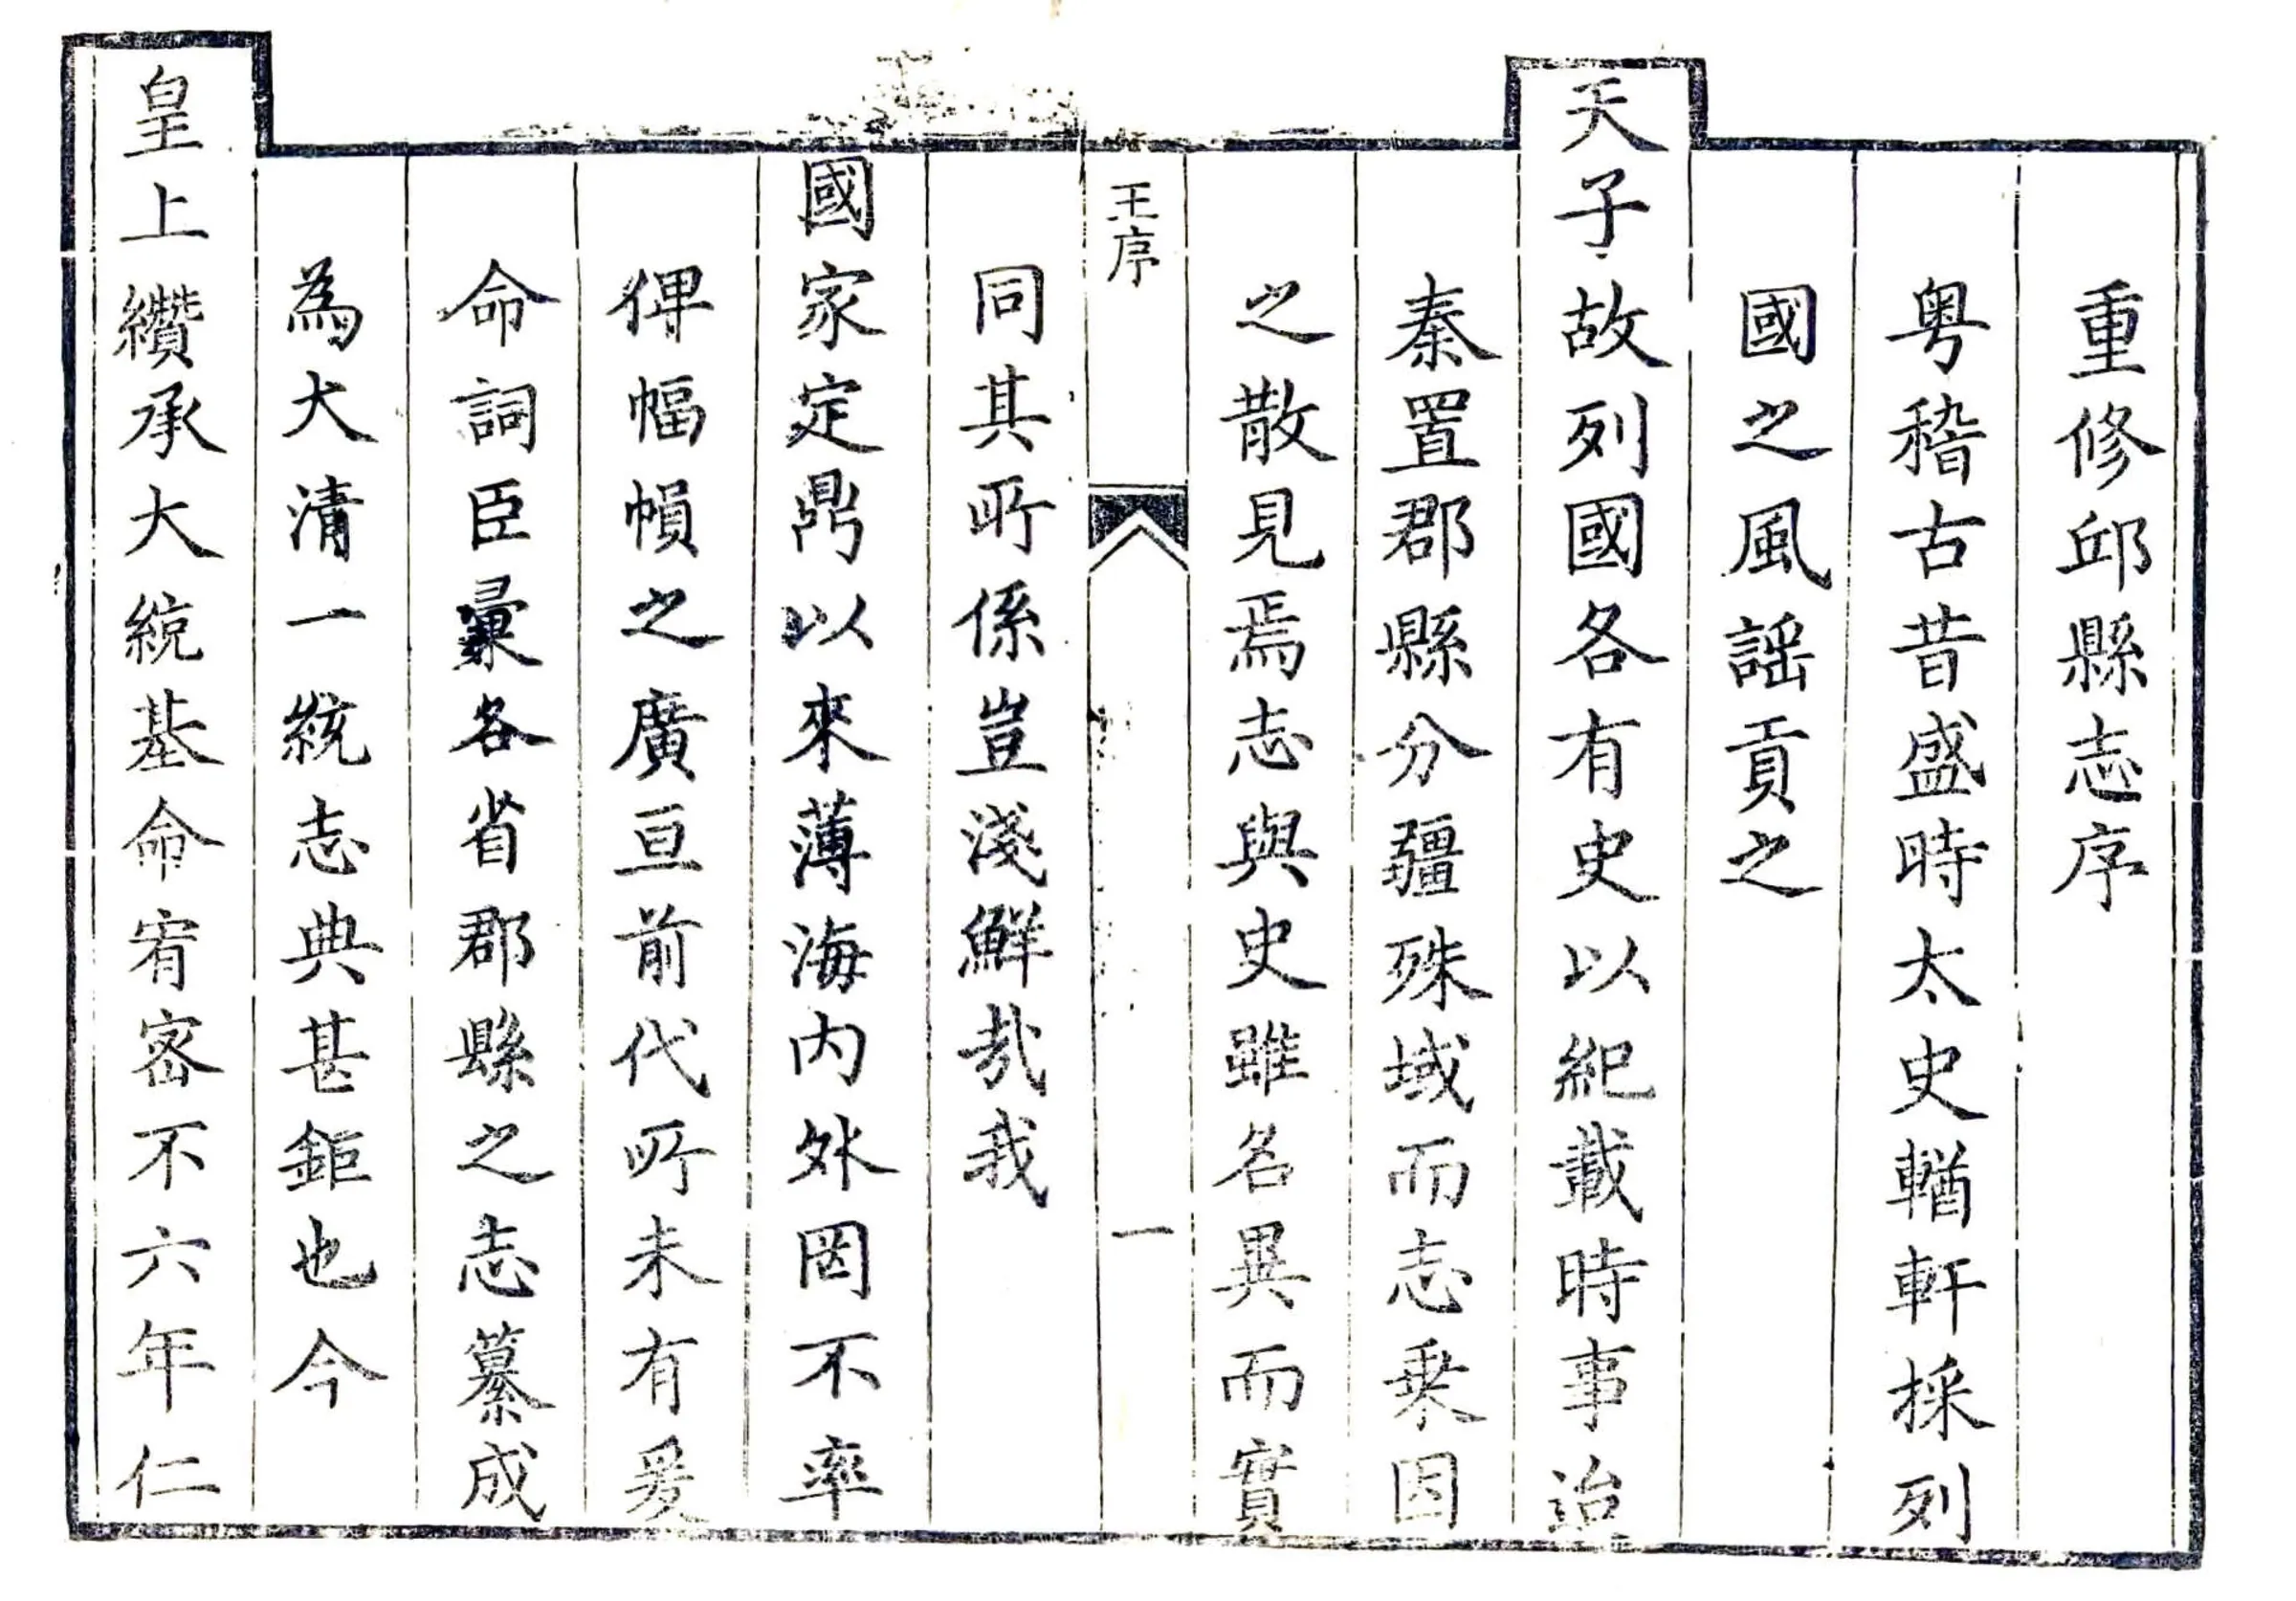 重修邱縣志序
粤稽古昔盛時太史輶軒採列
國之風謡貢之
天子故列國各有史以紀載時事迨
秦置郡縣分疆殊域而志乗因
之散見焉志與史雖名異而實
王序
一
同其所係豈淺鮮哉我
國家定鼎以來薄海内外罔不率
俾幅幀之廣亘前代所未有爰
命詞臣彚各省郡縣之志纂成
為大清一統志典甚鉅也今
皇上纘承大統基命宥密不六年仁